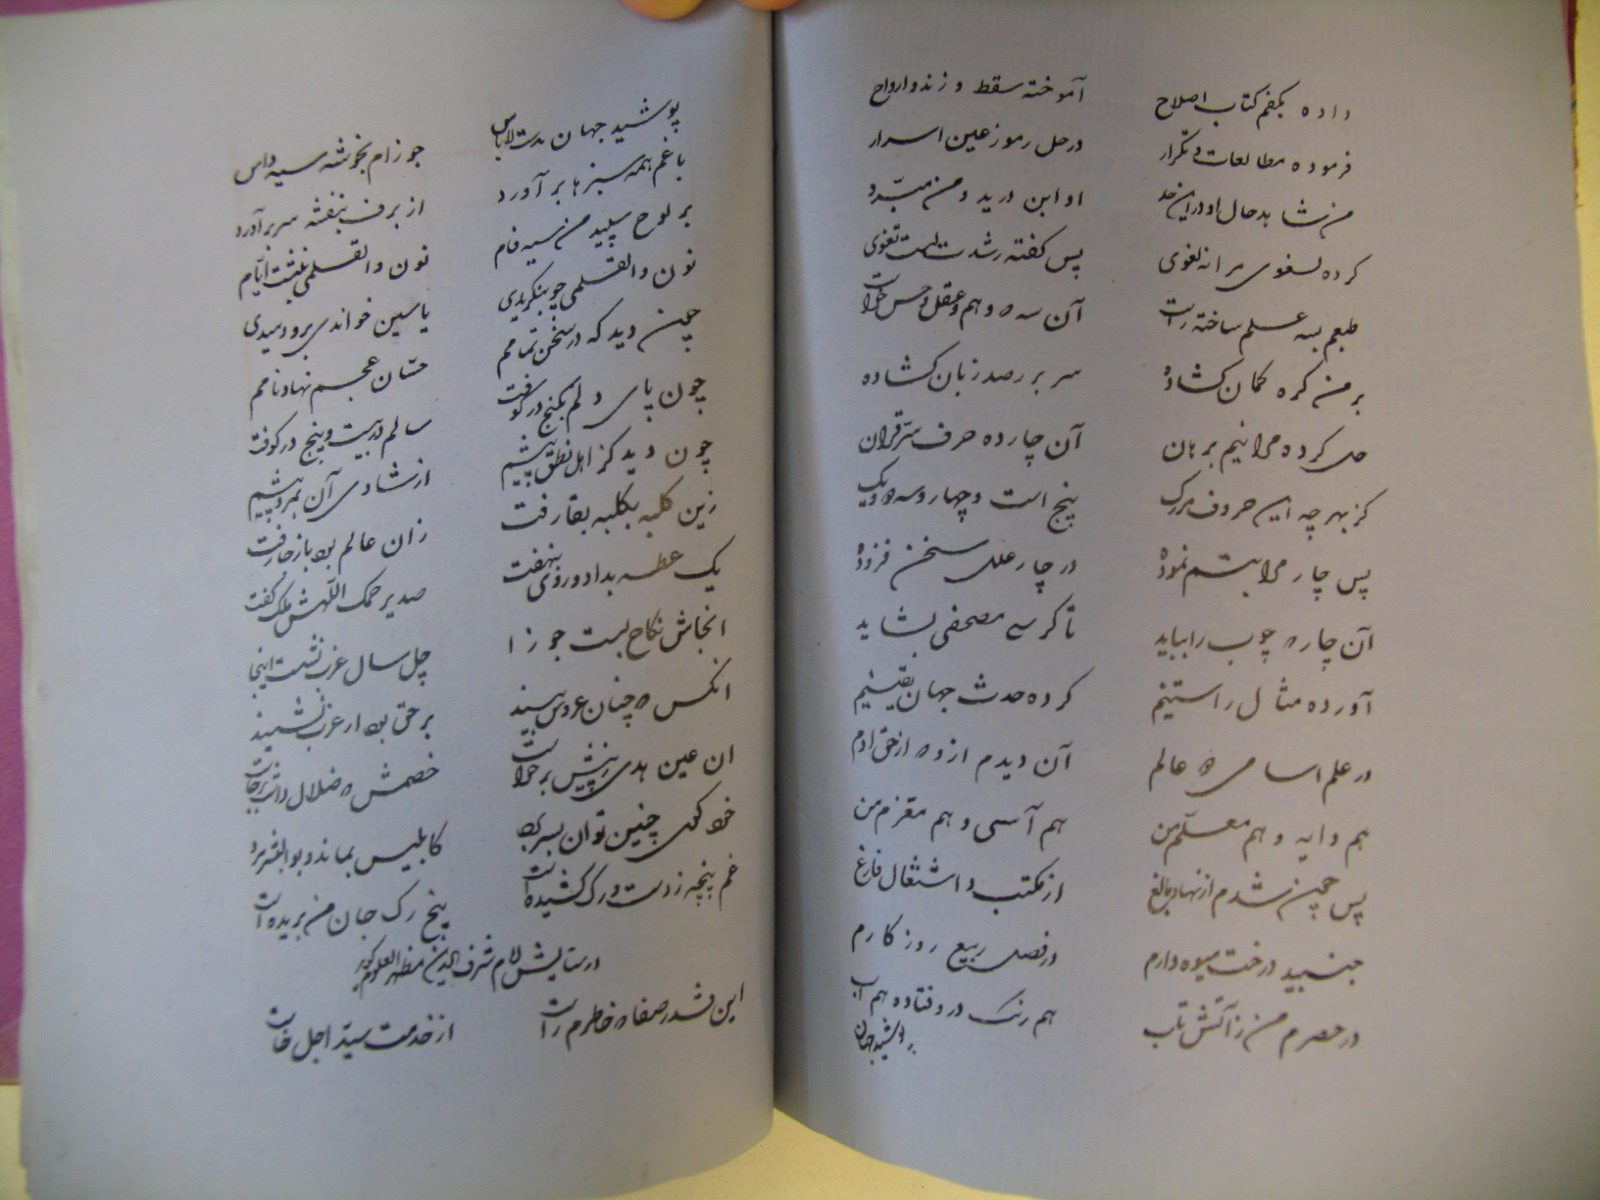 داده بکفم کتاب اصلاح آموخته سقط و زند و ارواح
فرموده مطالعات و تکرار در حل رموز عین اسرار
من شاهد حال او در این حد او ابن درید و من مبرّد
کرده لغوی مرا نه لغوی پس گفته رشدت لست تغوی
طبعم بسه علم ساخته راست آن سه ه وهم و عقل و حس خواست
بر من گره کمان گشاده سر بر رصد زبان گشاده
حل کرده مرا نیم برهان آن چارده حرف سرّ قران
کز بهر چه این حروف پنج است و چهار و سه دو و یک
پس چار مرا بتم نموده در چار علل سخن فزوده
آن چار ه چوب را بباید تا کرسی مصحفی بشاید
آورده مثال راستینم کرده حدث جهان یقینم
در علم اسامی ه عالم آن دیدم ازو ه از حق ادم
هم دایه و هم معلّم من هم آسی و هم مقرم من
پس چون شدم از نهاد بالغ از مکتب و اشتغال فارغ
جنبید درخت میوه دارم در فصل ربیع روزکارم
در حصرم من ز آتش تاب هم رنگ در وفتاده هم آب
پوشید جهان
پوشید جهان مدت لاباس جوزام بخوشه سیه داس
باغم همه سبزها بر آورد از برف بنفشه سر بر آورد
بر لوح سپید من سیه فام نون والقلمی نبشت ایّام
نون والقلمی چو بنگریدی یاسین خواندی برو دمیدی
چون دید که در سخن تمامم حسّان عجم نهاد نامم
چون پای دلم بکنج در کوفت سالم در بیست و پنج در کوفت
چون دید کز اهل نطق بیشم از شادی آن بمرد پیشم
زین کلبه بکلبه بقا رفت زان عالم بوده باز جا رفت
یک عطسه بداد و روی بنهفت صد یرحمک اللهش ملک گفت
انجاش نکاح بست جوزا چل سال عزب نشست اینجا
انکس ه چنان عروس بیند بر حق بود ار عزب نشیند
ان عین هدی ز پیش برخواست خصمش ه ضلال داشت برجاست
خود کی چنین توان بسر برد کابلیس بماند و بوالبشر مرد
غم پنجه ز دست و رگ کشیده است پنج رگ جان من بریده است
در ستایش امام شرف الدین مظهر العلوم گوید
این قدر صفا ه خاطرم راست از خدمت سیّد اجل خاست